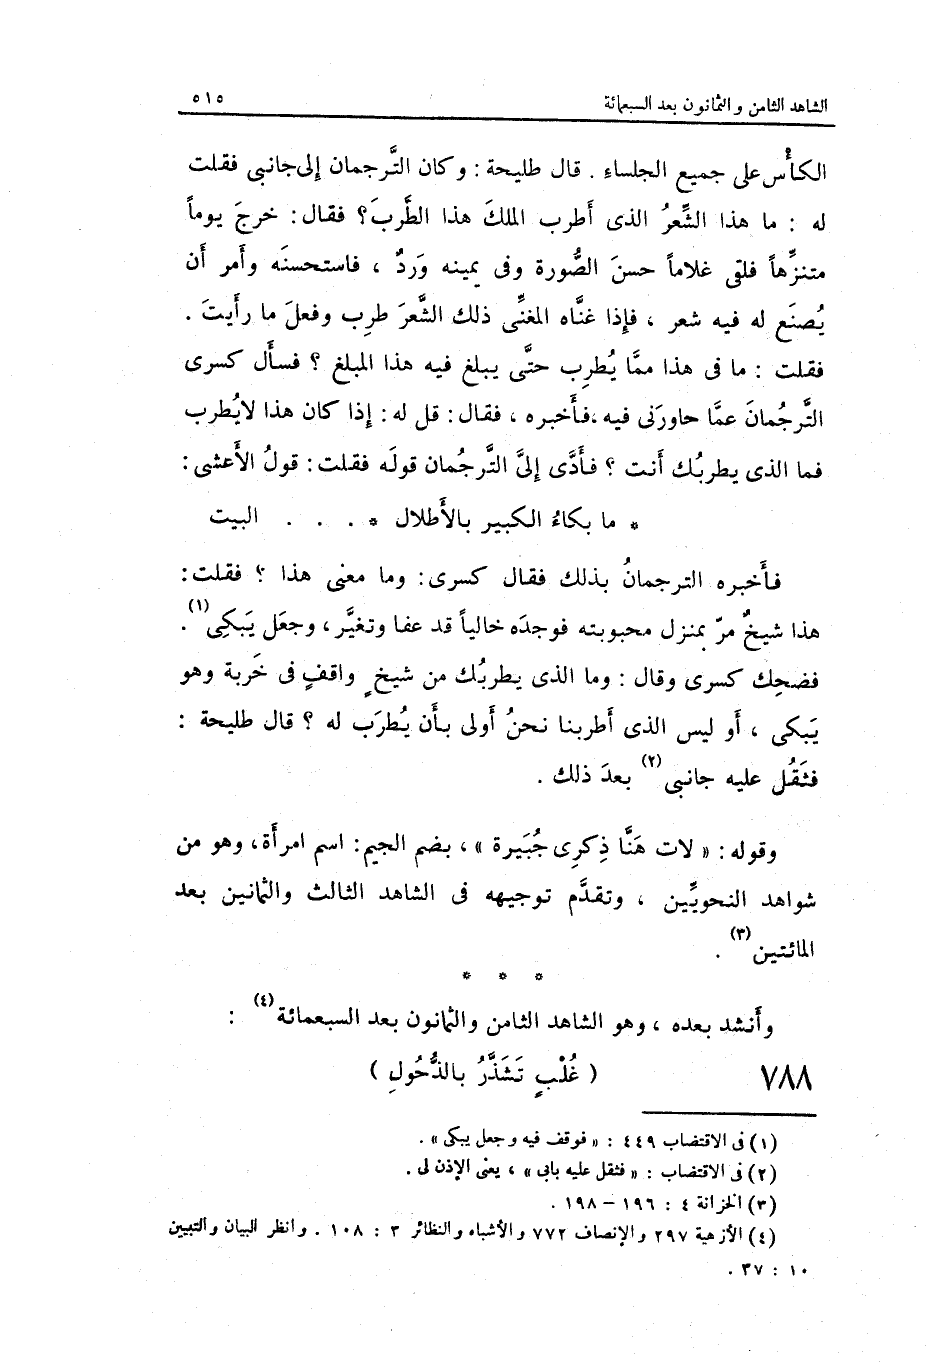 الشاهد الثامن والثمانون بعد السبعمائة ٥١٥
الكأْس على جميع الجلساء . قال طليحة : وكان التَّرجمان إلى جانبى فقلت
له : ما هذا الشِّعرُ الذى أطرب الملكَ هذا الطَّربَ؟ فقال : خرجَ يوماً
متنزِّهاً فلقى غلاماً حسنَ الصُّورة وفى يمينه وَردٌ ، فاستحسنَه وأمر أن
يُصنَع له فيه شعر ، فإذا غنَّاه المغنِّى ذلك الشَّعرَ طرِب وفعلَ ما رأيتَ .
فقلت : ما فى هذا ممَّا يُطرِب حتَّى يبلغ فيه هذا المبلغ ؟ فسأَل كسرى
التَّرجُمانَ عمَّا حاورَنى فيه ،فأَخبره ، فقال : قل له : إذا كان هذا لايُطرب
فما الذى يطربُك أنت ؟ فأَدَّى إلىَّ التَّرجُمان قولَه فقلت : قولُ الأَعشى :
* ما بكاءُ الكبير بالأَطلال * . . . البيت
فأَخبره الترجمانُ بذلك فقال كسرى : وما معنى هذا ؟ فقلت :
هذا شيخٌ مرّ بمنزل محبوبته فوجدَه خالياً قد عفا وتغيَّر ، وجعَل يَبكى(١) .
فضحِك كسرى وقال : وما الذى يطربُك من شيخٍ واقفٍ فى خَربة وهو
يَبكى ، أو ليس الذى أطربنا نحنُ أولى بأَن يُطرَب له ؟ قال طليحة :
فثَقُل عليه جانبى(٢) بعدَ ذلك .
وقوله : « لات هَنَّا ذِكرِى جُبَيرة » ، بضم الجيم : اسم امرأَة ، وهو من
شواهد النحويِّين ، وتقدَّم توجيهه فى الشاهد الثالث والثمانين بعد
المائتين(٣) .
* * *
وأَنشد بعده ، وهو الشاهد الثامن والثمانون بعد السبعمائة(٤) :
٧٨٨ ( غُلْبٍ تَشَذَّرُ بالذُّحُولِ )
(١) فى الاقتضاب ٤٤٩ : « فوقف فيه وجعل يبكى » .
(٢) فى الاقتضاب : « فثقل عليه بابى » ، يعنى الإذن لى .
(٣) الخزانة ٤ : ١٩٦ – ١٩٨ .
(٤) الأزهية ٢٩٧ والإنصاف ٧٧٢ والأشباه والنظائر ٣ : ١٠٨ . وانظر البيان والتبيين
١٠ : ٣٧ .